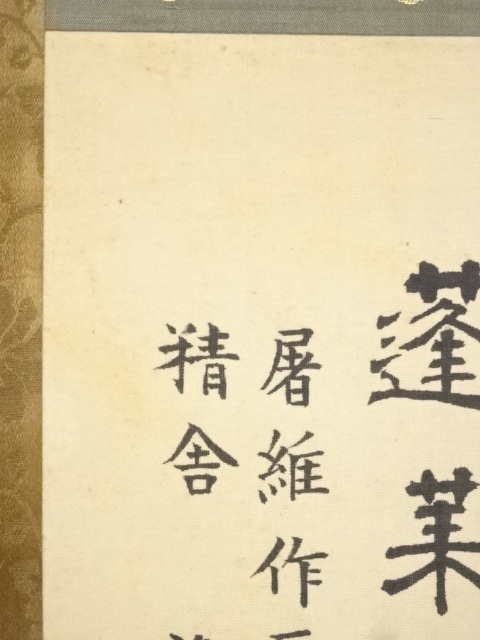 蓬莱
屠維作
精舎